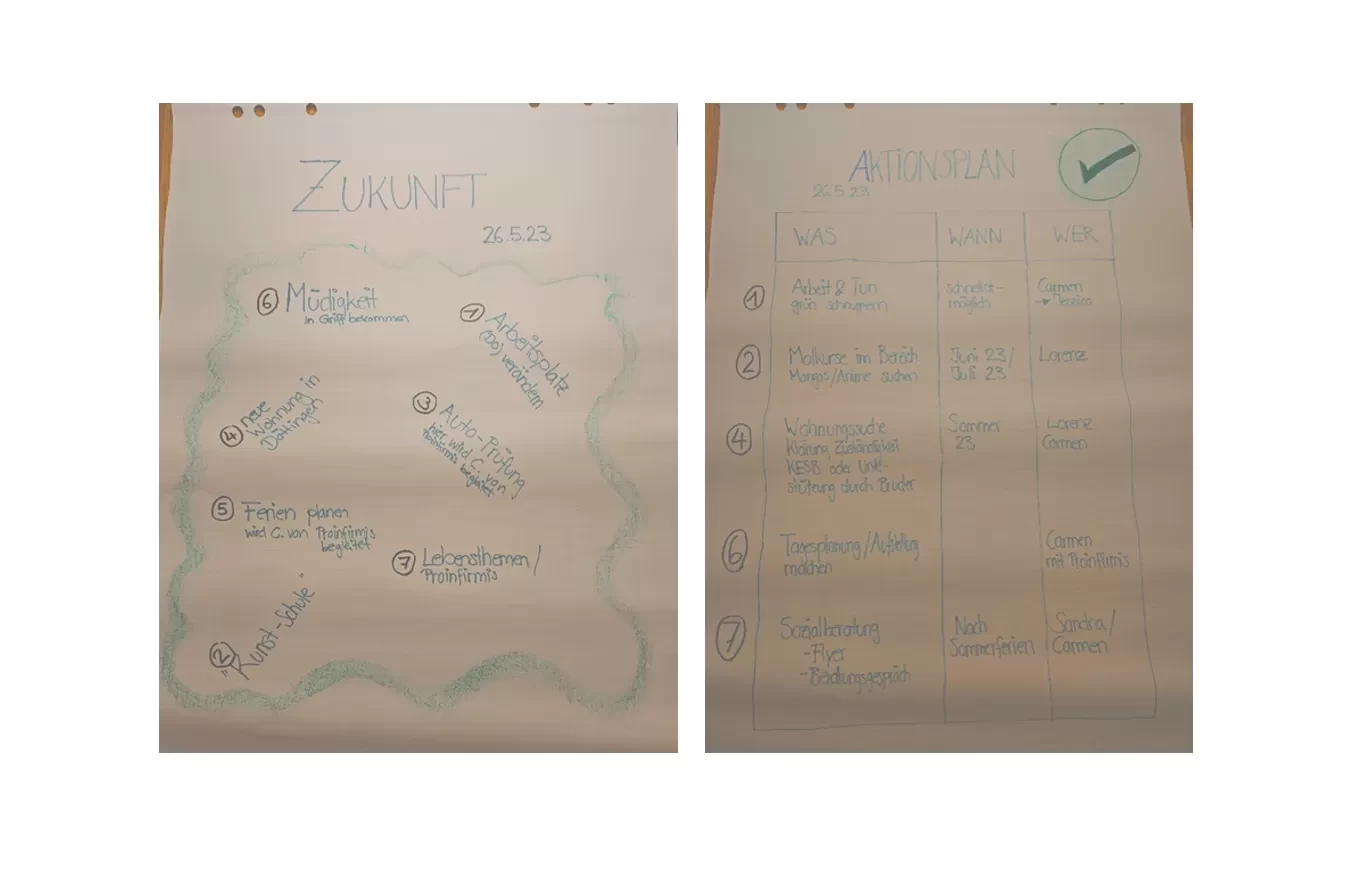 ZUKUNFT
26.5.23
⑥ Müdigkeit
in Griff bekommen
① Arbeitsplatz
(Do) verändern
④ neue
Wohnung in
Döttingen
③ Auto-Prüfung
hier wird C. von
Proinfirmis begleitet
⑤ Ferien planen
wird C. von Proinfirmis
begleitet
⑦ Lebensthemen/
Proinfirmis
② "Kunst-Schule"
AKTIONSPLAN
26.5.23
WAS WANN WER
① Arbeit & Tun schnellst- Carmen
grün schnuppern möglich → Jessica
② Malkurse im Bereich Juni 23/ Lorenz
Mangas/Anime suchen Juli 23
④ Wohnungssuche Sommer Lorenz
Klärung Zuständigkeit 23 Carmen
KESB oder Unter-
stützung durch Bruder
⑥ Tagesplanung/Aufstellung Carmen
machen mit Proinfirmis
⑦ Sozialberatung Nach Sandra/
-Flyer Sommerferien Carmen